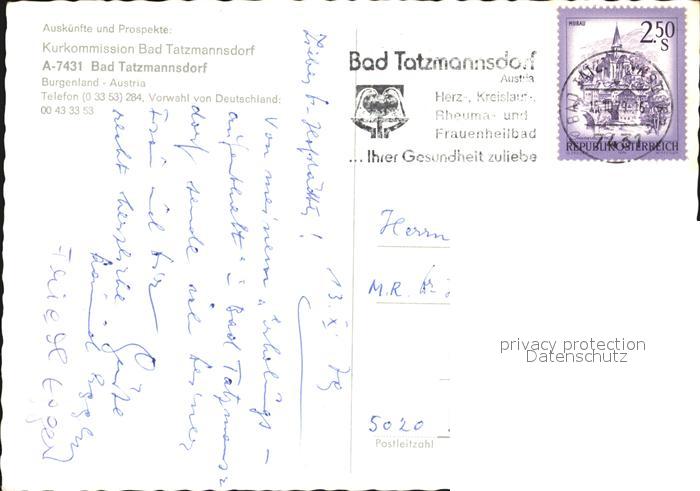 Auskünfte und Prospekte:
Kurkommission Bad Tatzmannsdorf
A-7431 Bad Tatzmannsdorf
Burgenland - Austria
Telefon (0 33 53) 284, Vorwahl von Deutschland:
00 43 33 53
Bad Tatzmannsdorf
Austria
Herz-, Kreislauf-,
Rheuma- und
Frauenheilbad
... Ihrer Gesundheit zuliebe
MURAU
2.50
S
15.10.79-16
7431
REPUBLIK ÖSTERREICH
13. X. 79
Lieber Hofrat!
Von meinem "Erholungs-
aufenthalt" in Bad Tatzmanns-
dorf sende ich Deiner
Frau und Dir
recht herzliche Grüße
Herrn
M.R. Dr.
5020
Postleitzahl
privacy protection
Datenschutz